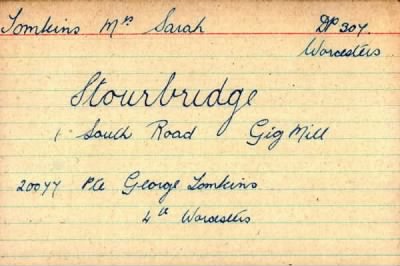 Tomkins Mrs Sarah
DP 307.
Worcesters
Stourbridge
1 South Road Gig Mill
20077 Pte George Tomkins
4th Worcesters